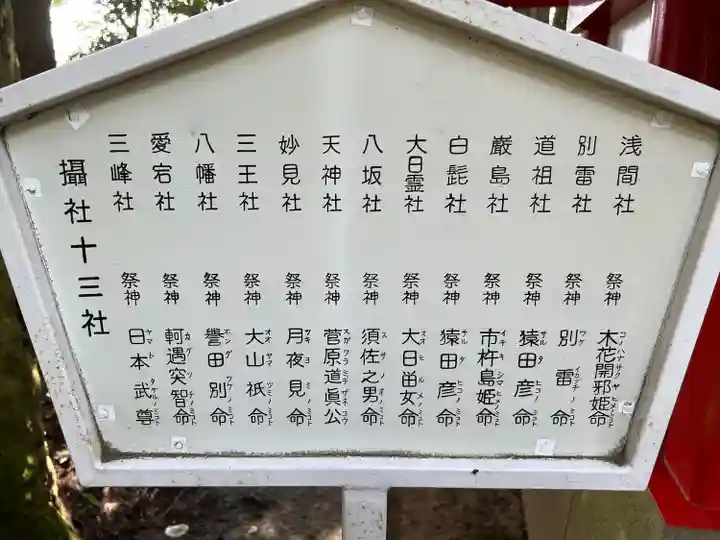 浅間社 祭神 木花開邪姫命
別雷社 祭神 別雷命
道祖社 祭神 猿田彦命
巌島社 祭神 市杵島姫命
白髭社 祭神 猿田彦命
大日霊社 祭神 大日孁女命
八坂社 祭神 須佐之男命
天神社 祭神 菅原道眞公
妙見社 祭神 月夜見命
三王社 祭神 大山祇命
八幡社 祭神 譽田別命
愛宕社 祭神 軻遇突智命
三峰社 祭神 日本武尊
攝社十三社